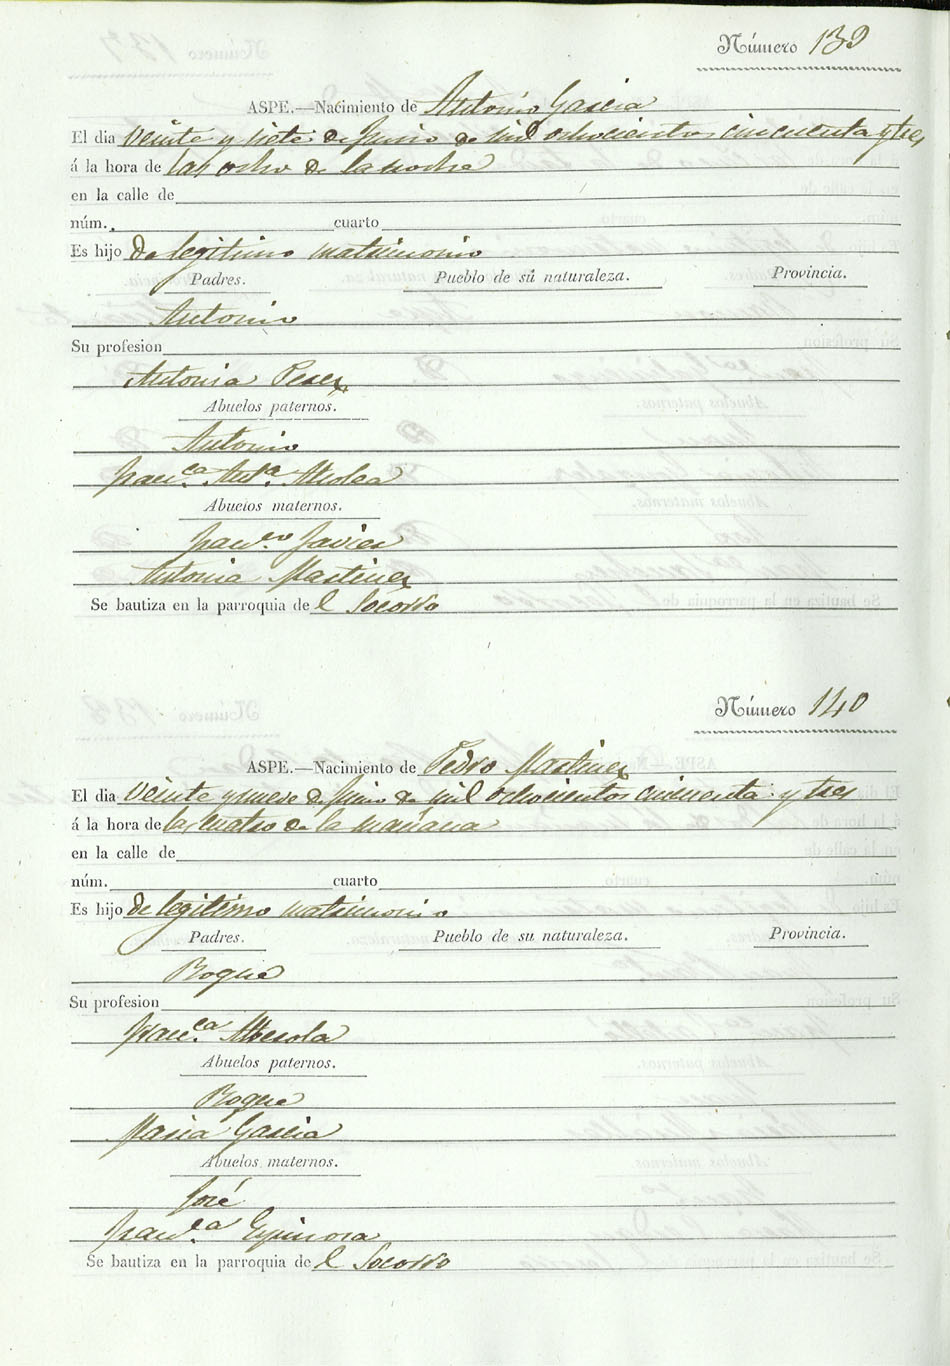 Número 139
ASPE.—Nacimiento de Antonio Garcia
El dia veinte y siete de Junio de mil ochocientos cincuenta y tres
á la hora de las ocho de la noche
en la calle de
núm. cuarto
Es hijo de legitimo matrimonio
Padres. Pueblo de su naturaleza. Provincia.
Antonio
Su profesion
Antonia Perez
Abuelos paternos.
Antonio
Fran.ca Ant.a
Abuelos maternos.
Fran.co Javier
Antonia Martinez
Se bautiza en la parroquia de l Socorro
Número 140
ASPE.—Nacimiento de Pedro Martinez
El dia veinte y nueve de Junio de mil ochocientos cincuenta y tres
á la hora de las cuatro de la mañana
en la calle de
núm. cuarto
Es hijo de legitimo matrimonio
Padres. Pueblo de su naturaleza. Provincia.
Roque
Su profesion
Fran.ca
Abuelos paternos.
Roque
Maria Garcia
Abuelos maternos.
José
Fran.ca Espinosa
Se bautiza en la parroquia de l Socorro